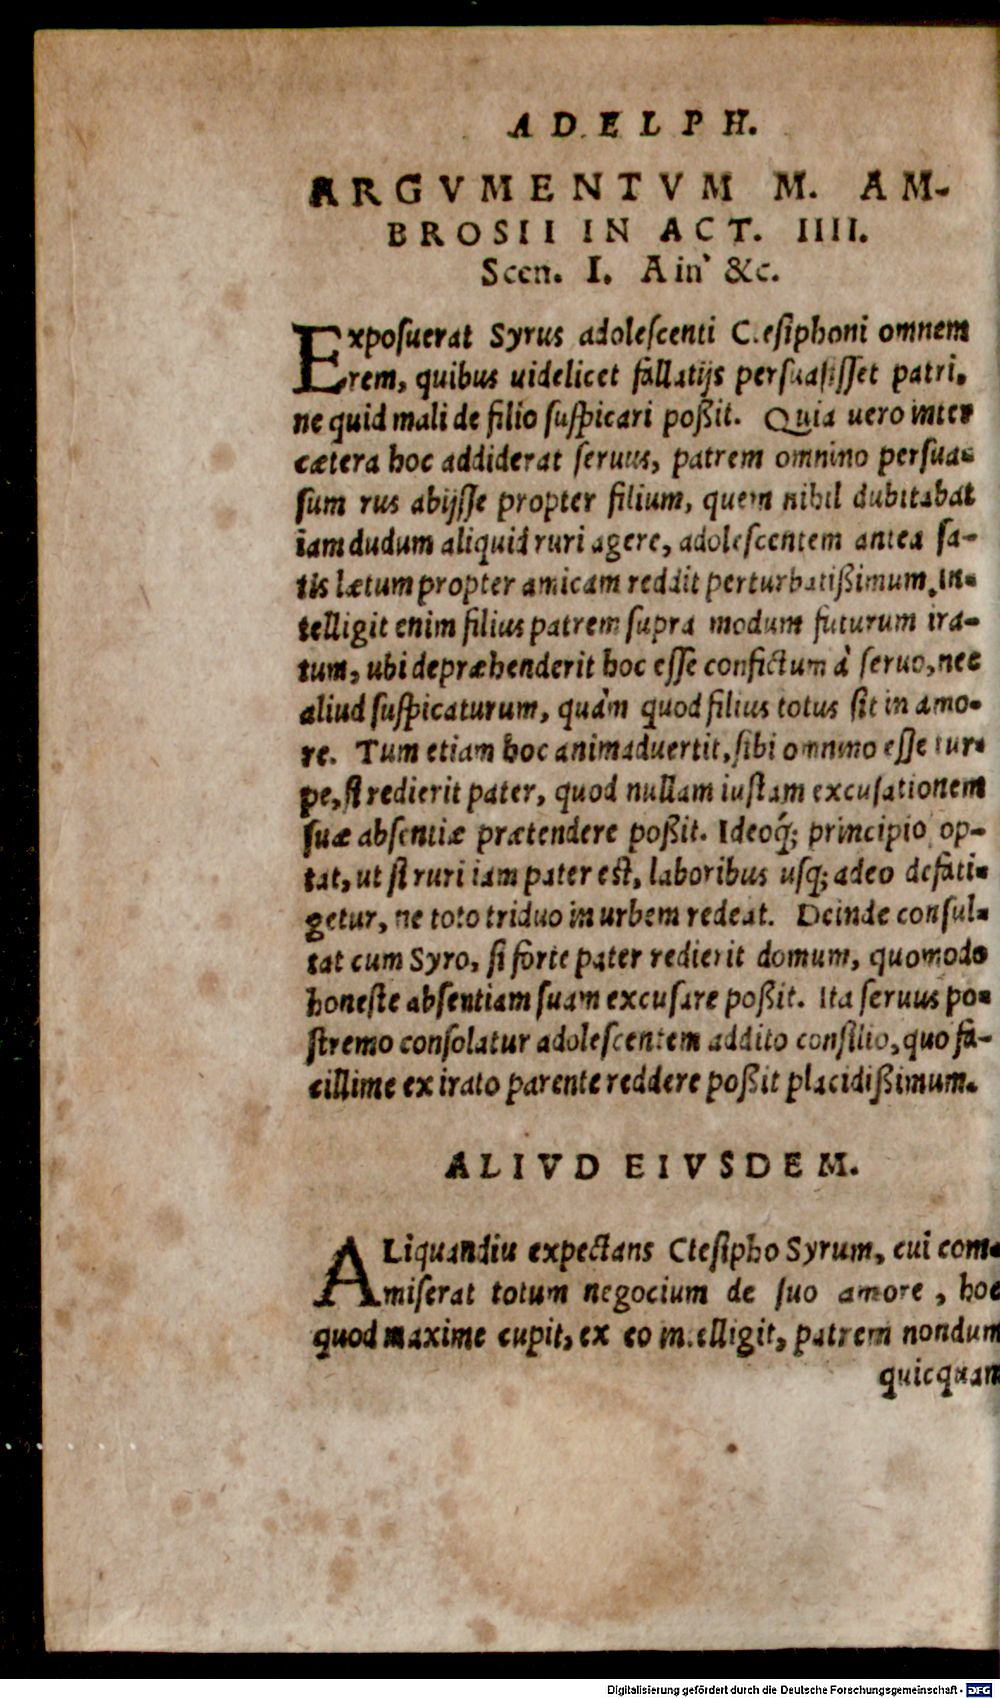 ADELPH.
ARGVMENTVM M. AM-
BROSII IN ACT. IIII.
Scen. I. Ain' &c.
Exposuerat Syrus adolescenti Ctesiphoni omnem
rem, quibus uidelicet fallatijs persuasisset patri,
ne quid mali de filio suspicari poßit. Quia uero inter
cætera hoc addiderat seruus, patrem omnino persua-
sum rus abijsse propter filium, quem nihil dubitabat
iamdudum aliquid ruri agere, adolescentem antea sa-
tis lætum propter amicam reddit perturbatißimum. In-
telligit enim filius patrem supra modum futurum ira-
tum, ubi depræhenderit hoc esse confictum à seruo, nec
aliud suspicaturum, quàm quod filius totus sit in amo-
re. Tum etiam hoc animaduertit, sibi omnino esse tur-
pe, si redierit pater, quod nullam iustam excusationem
suæ absentiæ prætendere poßit. Ideoq́; principio op-
tat, ut si ruri iam pater est, laboribus usq; adeo defati-
getur, ne toto triduo in urbem redeat. Deinde consul-
tat cum Syro, si forte pater redierit domum, quomodo
honeste absentiam suam excusare poßit. Ita seruus po-
stremo consolatur adolescentem addito consilio, quo fa-
cillime ex irato parente reddere poßit placidißimum.
ALIVD EIVSDEM.
ALiquandiu expectans Ctesipho Syrum, cui com-
miserat totum negocium de suo amore, hoc
quod maxime cupit, ex eo intelligit, patrem nondum
quicquam
Digitalisierung gefördert durch die Deutsche Forschungsgemeinschaft - DFG